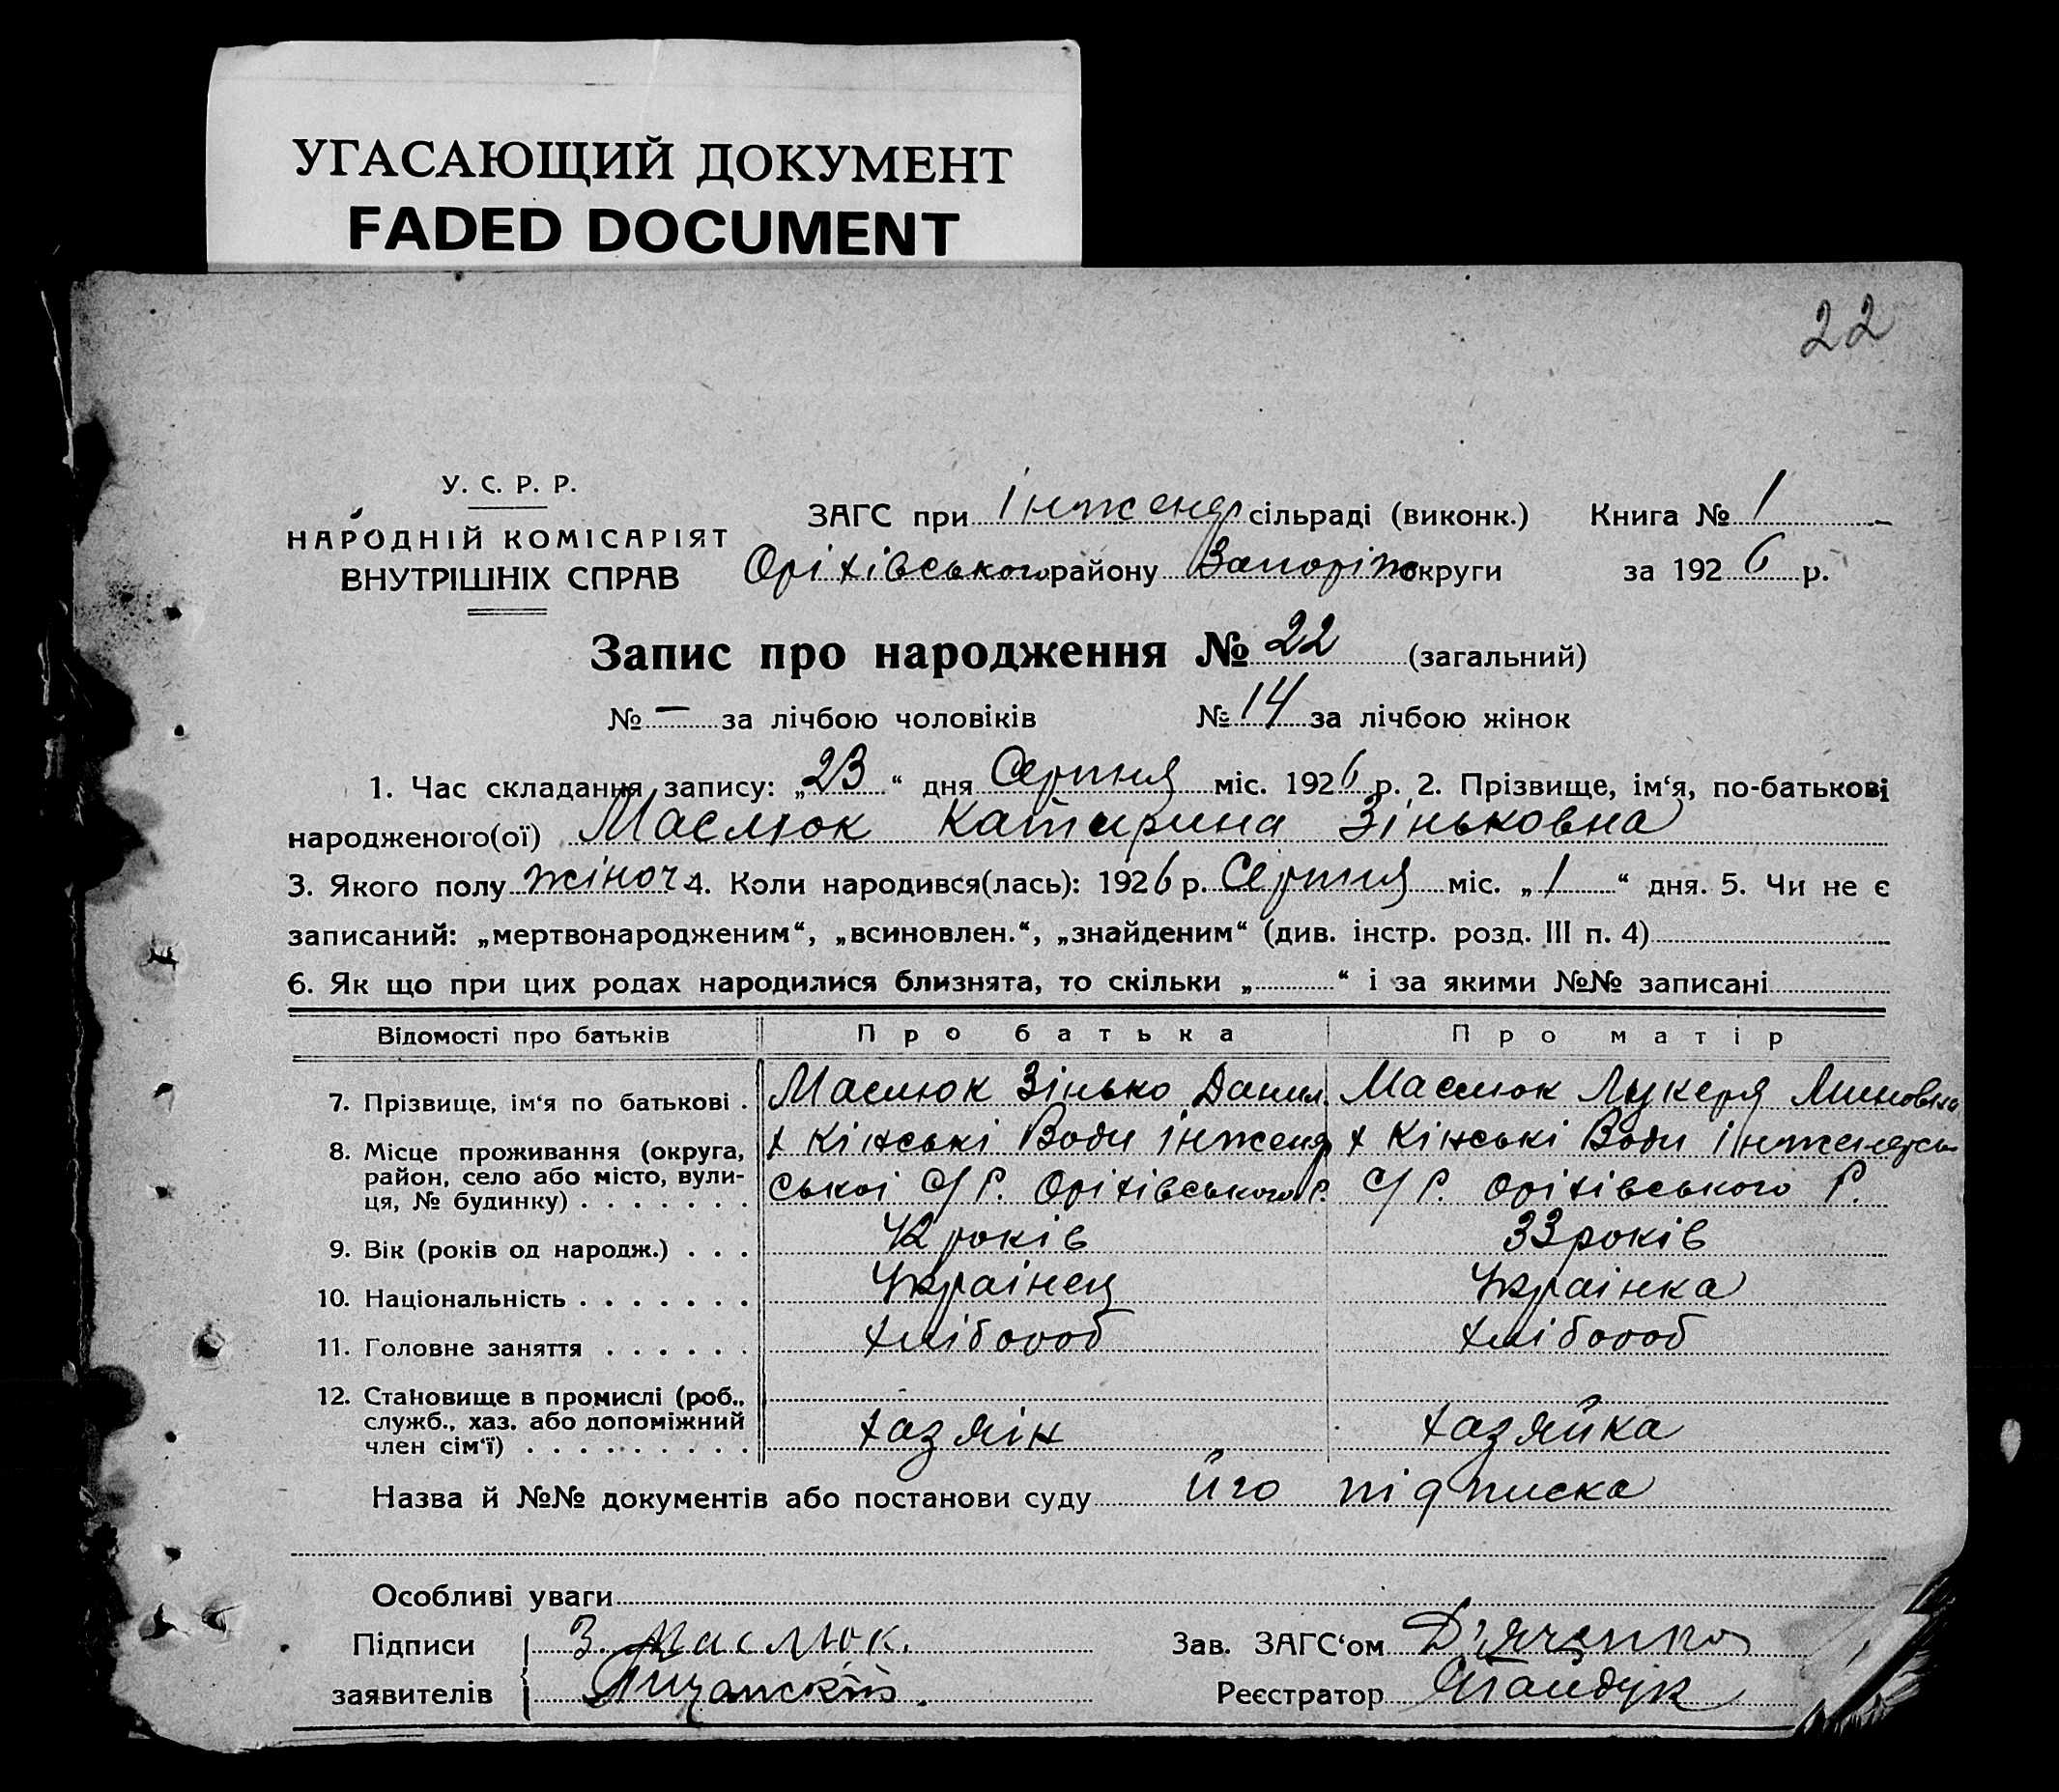 УГАСАЮЩИЙ ДОКУМЕНТ
FADED DOCUMENT
22
У. С. Р. Р.
НАРОДНІЙ КОМІСАРІЯТ
ВНУТРІШНІХ СПРАВ
ЗАГС при Інженер сільраді (виконк.) Книга № 1
Оріхівського району Запоріж округи за 1926 р.
Запис про народження № 22 (загальний)
№ — за лічбою чоловіків № 14 за лічбою жінок
1. Час складання запису: „23“ дня Серпня міс. 1926 р. 2. Прізвище, ім‘я, по-батькові
народженого(ої) Маслюк Катирина Зіньковна
3. Якого полу жіноч 4. Коли народився(лась): 1926 р. Серпня міс. „1“ дня. 5. Чи не є
записаний: „мертвонародженим“, „всиновлен.“, „знайденим“ (див. інстр. розд. III п. 4)
6. Як що при цих родах народилися близнята, то скільки „ “ і за якими №№ записані
Відомості про батьків Про батька Про матір
7. Прізвище, ім‘я по батькові . Маслюк Зінько Данил. Маслюк Лукеря
8. Місце проживання (округа, х Кінські Води інженер х Кінські Води Інженерсь
район, село або місто, вули- ської С/Р. Оріхівського Р. С/Р. Оріхівського Р.
ця, № будинку) . . . . . . .
9. Вік (років од народж.) . . . 42 років 33 років
10. Національність . . . . . . . Украінец Украінка
11. Головне заняття . . . . . . хлібороб хлібороб
12. Становище в промислі (роб.,
служб., хаз. або допоміжний хазяін хазяйка
член сім‘ї) . . . . . . . . .
Назва й №№ документів або постанови суду його підписка
Особливі уваги
Підписи З. Маслюк. Зав. ЗАГС‘ом Дяченко
заявителів Реєстратор